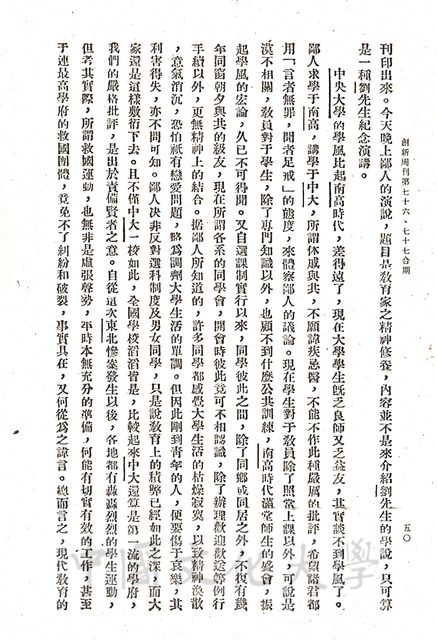 創新周刊第七十六、七十七合期
五〇
刊印出來。今天晚上鄙人的演說，題目是教育家之精神修養，內容並不是來介紹劉先生的學說，只可算
是一種劉先生紀念演講。
中央大學的學風比起南高時代，差得遠了，現在大學生既乏良師又乏益友，其實談不到學風了。
鄙人求學于南高，講學于中大，所謂休戚與共，不願諱疾忌醫，不能不作此種嚴厲的批評，希望諸君都
用「言者無罪，聞者足戒」的態度，來體察鄙人的議論。現在學生對于教員除了照常上課以外，可說是
漠不相關，教員對于學生，除了專門知識以外，也顧不到什麼公共訓練，南高時代滿堂師生的盛會，振
起學風的宏論，久已不可得聞。又自選課制實行以來，同學彼此之間，除了同鄉或同居之外，不復有幾
年同窗朝夕與共的級友，現在所謂各系的同學會，開會時彼此竟可不相認識，除了辦理歡迎歡送等例行
手續以外，更無精神上的結合。據鄙人所知道的，許多同學都感覺大學生活的枯燥寂寞，以致精神渙散
，意氣消沉，恐怕祇有戀愛問題，略為調劑大學生活的單調。但因此剛到青年的人，便要傷于哀樂，其
利害得失，亦不問可知。鄙人決非反對選科制度及男女同學，只是說教育上的積弊已經如此之深，而大
家還是這樣敷衍下去。且不僅中大一校如此，全國學校滔滔皆是，比較起來中大還算是第一流的學府，
我們的嚴格批評，是出於責備賢者之意。自從這次東北慘案發生以後，各地都有轟轟烈烈的學生運動，
但考其實際，所謂救國運動，也無非是虛張聲勢，平時本無充分的準備，何能有切實有效的工作，甚至
于連最高學府的救國團體，竟免不了糾紛和破裂，事實具在，又何從為之諱言。總而言之，現代教育的
中國文化大學